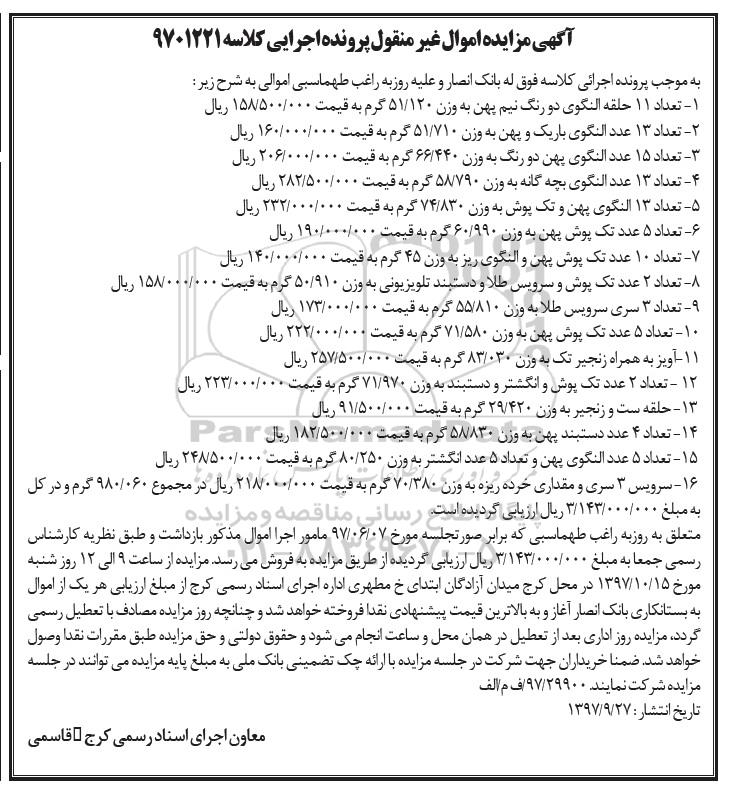 آگهی مزایده اموال غیر منقول پرونده اجرایی کلاسه ۹۷۰۱۲۲۱
به موجب پرونده اجرائی کلاسه فوق له بانک انصار و علیه روزبه راغب طهماسبی اموالی به شرح زیر :
۱- تعداد ۱۱ حلقه النگوی دو رنگ نیم پهن به وزن ۵۱/۱۲۰ گرم به قیمت ۱۵۸/۵۰۰/۰۰۰ ریال
۲- تعداد ۱۳ عدد النگوی باریک و پهن به وزن ۵۱/۷۱۰ گرم به قیمت ۱۶۰/۰۰۰/۰۰۰ ریال
۳- تعداد ۱۵ عدد النگوی پهن دو رنگ به وزن ۶۶/۴۴۰ گرم به قیمت ۲۰۶/۰۰۰/۰۰۰ ریال
۴- تعداد ۱۳ عدد النگوی بچه گانه به وزن ۵۸/۷۹۰ گرم به قیمت ۲۸۲/۵۰۰/۰۰۰ ریال
۵- تعداد ۱۳ النگوی پهن و تک پوش به وزن ۷۴/۸۳۰ گرم به قیمت ۲۳۲/۰۰۰/۰۰۰ ریال
۶- تعداد ۵ عدد تک پوش پهن به وزن ۶۰/۹۹۰ گرم به قیمت ۱۹۰/۰۰۰/۰۰۰ ریال
۷- تعداد ۱۰ عدد تک پوش پهن و النگوی ریز به وزن ۴۵ گرم به قیمت ۱۴۰/۰۰۰/۰۰۰ ریال
۸- تعداد ۲ عدد تک پوش و سرویس طلا و دستبند تلویزیونی به وزن ۵۰/۹۱۰ گرم به قیمت ۱۵۸/۰۰۰/۰۰۰ ریال
۹- تعداد ۳ سری سرویس طلا به وزن ۵۵/۸۱۰ گرم به قیمت ۱۷۳/۰۰۰/۰۰۰ ریال
۱۰- تعداد ۵ عدد تک پوش پهن به وزن ۷۱/۵۸۰ گرم به قیمت ۲۲۲/۰۰۰/۰۰۰ ریال
۱۱-آویز به همراه زنجیر تک به وزن ۸۳/۰۳۰ گرم به قیمت ۲۵۷/۵۰۰/۰۰۰ ریال
۱۲ - تعداد ۲ عدد تک پوش و انگشتر و دستبند به وزن ۷۱/۹۷۰ گرم به قیمت ۲۲۳/۰۰۰/۰۰۰ ریال
۱۳- حلقه ست و زنجیر به وزن ۲۹/۴۲۰ گرم به قیمت ۹۱/۵۰۰/۰۰۰ ریال
۱۴- تعداد ۴ عدد دستبند پهن به وزن ۵۸/۸۳۰ گرم به قیمت ۱۸۲/۵۰۰/۰۰۰ ریال
۱۵- تعداد ۵ عدد النگوی پهن و تعداد ۵ عدد انگشتر به وزن ۸۰/۲۵۰ گرم به قیمت ۲۴۸/۵۰۰/۰۰۰ ریال
۱۶- سرویس ۳ سری و مقداری خرده ریزه به وزن ۷۰/۳۸۰ گرم به قیمت ۲۱۸/۰۰۰/۰۰۰ ریال در مجموع ۹۸۰/۰۶۰ گرم و در کل
به مبلغ ۳/۱۴۳/۰۰۰/۰۰۰ ریال ارزیابی گردیده است.
متعلق به روزبه راغب طهماسبی که برابر صورتجلسه مورخ ۹۷/۰۶/۰۷ مامور اجرا اموال مذکور بازداشت و طبق نظریه کارشناس
رسمی جمعا به مبلغ ۳/۱۴۳/۰۰۰/۰۰۰ ریال ارزیابی گردیده از طریق مزایده به فروش می رسد. مزایده از ساعت ۹ الی ۱۲ روز شنبه
مورخ ۱۳۹۷/۱۰/۱۵ در محل کرج میدان آزادگان ابتدای خ مطهری اداره اجرای اسناد رسمی کرج از مبلغ ارزیابی هر یک از اموال
به بستانکاری بانک انصار آغاز و به بالاترین قیمت پیشنهادی نقدا فروخته خواهد شد و چنانچه روز مزایده مصادف با تعطیل رسمی
گردد، مزایده روز اداری بعد از تعطیل در همان محل و ساعت انجام می شود و حقوق دولتی و حق مزایده طبق مقررات نقدا وصول
خواهد شد. ضمنا خریداران جهت شرکت در جلسه مزایده با ارائه چک تضمینی بانک ملی به مبلغ پایه مزایده می توانند در جلسه
مزایده شرکت نمایند. ۹۷/۲۹۹۰۰/ف م/الف
تاریخ انتشار : ۱۳۹۷/۹/۲۷
معاون اجرای اسناد رسمی کرج قاسمی
ParsNamadData
پایگاه اطلاع رسانی مناقصه و مزایده
۰۲۱-۸۸۳۴۹۶۷۰-۵